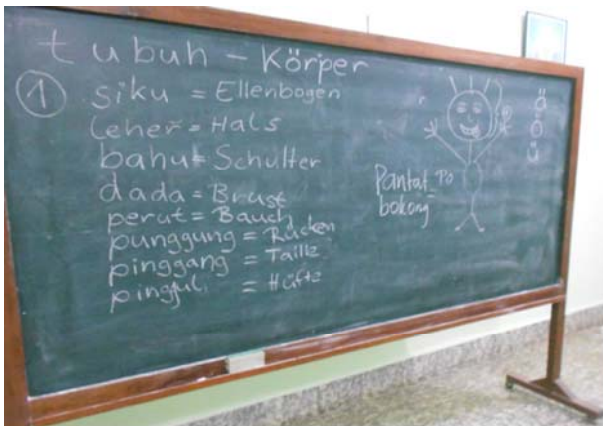 tubuh - Körper
① siku = Ellenbogen
leher = Hals
bahu = Schulter
dada = Brust
perut = Bauch
punggung = Rücken
pinggang = Taille
pinggul = Hüfte
Pantat = Po
bokong
ä
ö
ü